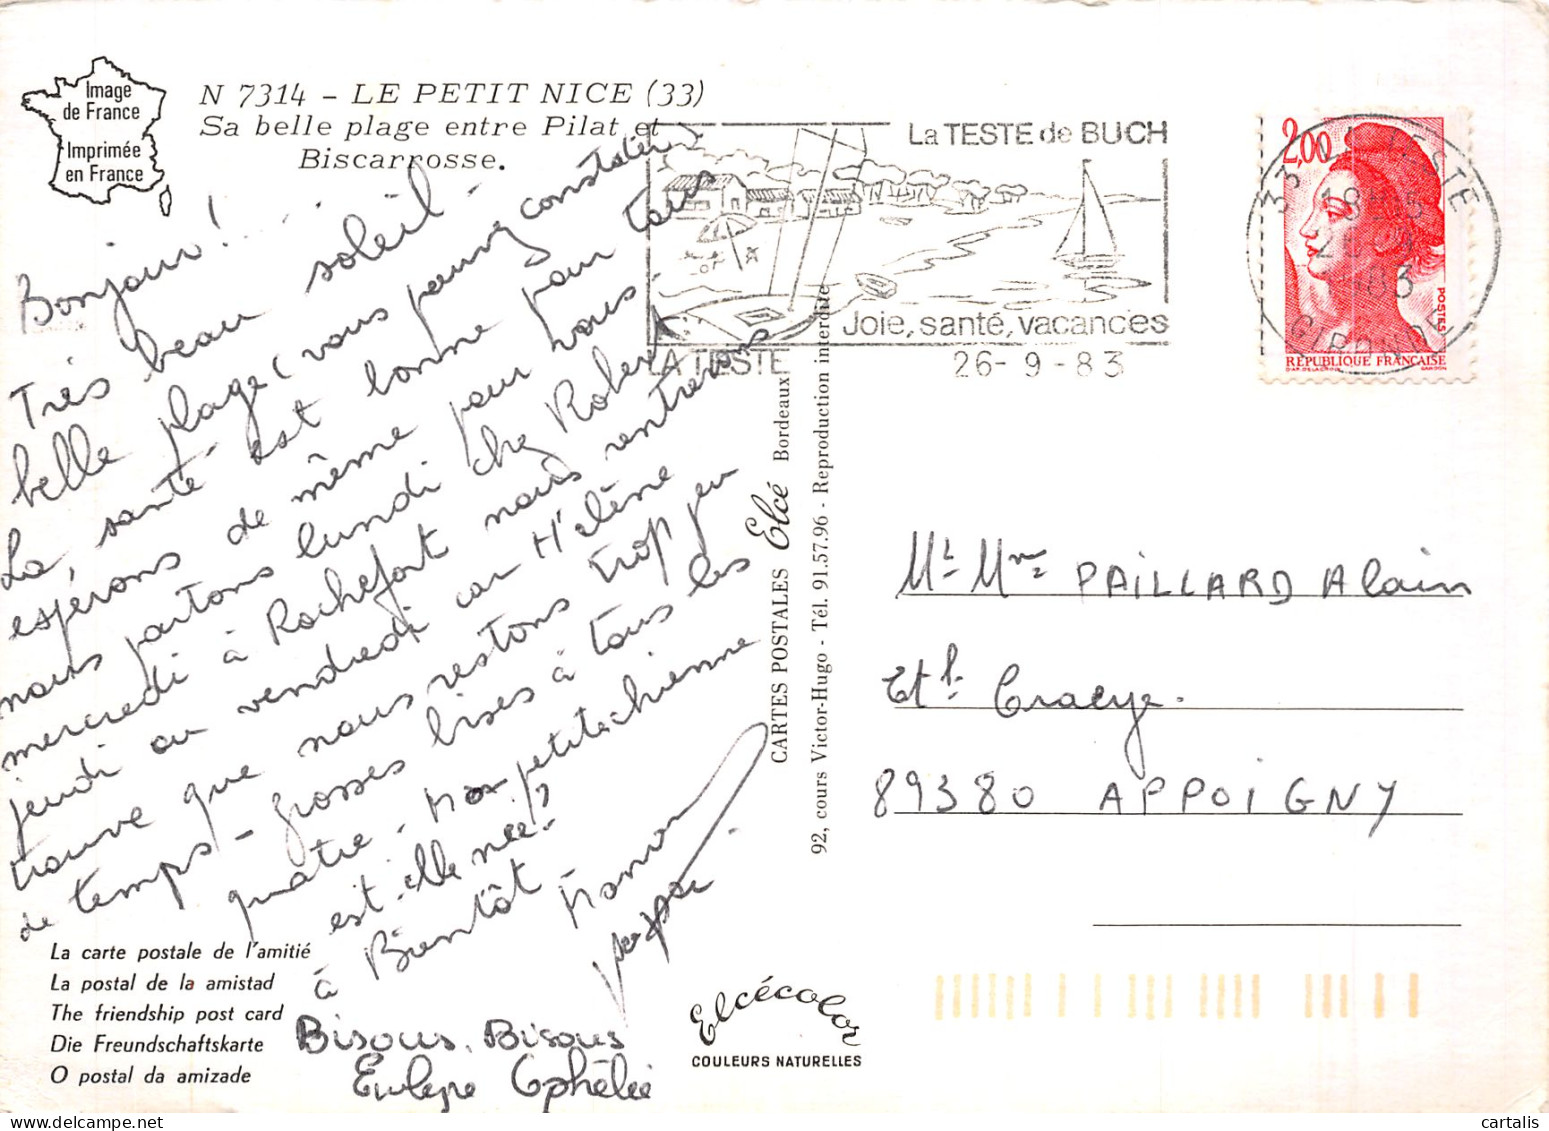 Image
de France
Imprimée
en France
N 7314 - LE PETIT NICE (33)
Sa belle plage entre Pilat et
Biscarrosse.
La TESTE de BUCH
Joie, santé, vacances
LA TESTE
26-9-83
2,00
33 LA TESTE
GIRONDE
POSTES
RÉPUBLIQUE FRANÇAISE
Bonjour!...
Très beau soleil -
belle plage (vous pouvez constater)
La santé est bonne pour tous
espérons de même pour vous -
nous partons lundi chez Robert
mercredi à Rochefort nous rentrerons
jeudi ou vendredi car Hélène
trouve que nous restons trop peu
de temps - Grosses bises à tous les
quatre - ma petite chienne
est-elle née?
à Bientôt Maman
papa
Bisous, Bisous
Ophélie
CARTES POSTALES Elcé Bordeaux
92, cours Victor-Hugo - Tél. 91.57.96 - Reproduction interdite
Mr Mme PAILLARD Alain
89380 APPOIGNY
La carte postale de l'amitié
La postal de la amistad
The friendship post card
Die Freundschaftskarte
O postal da amizade
Elcécolor
COULEURS NATURELLES
cartalis